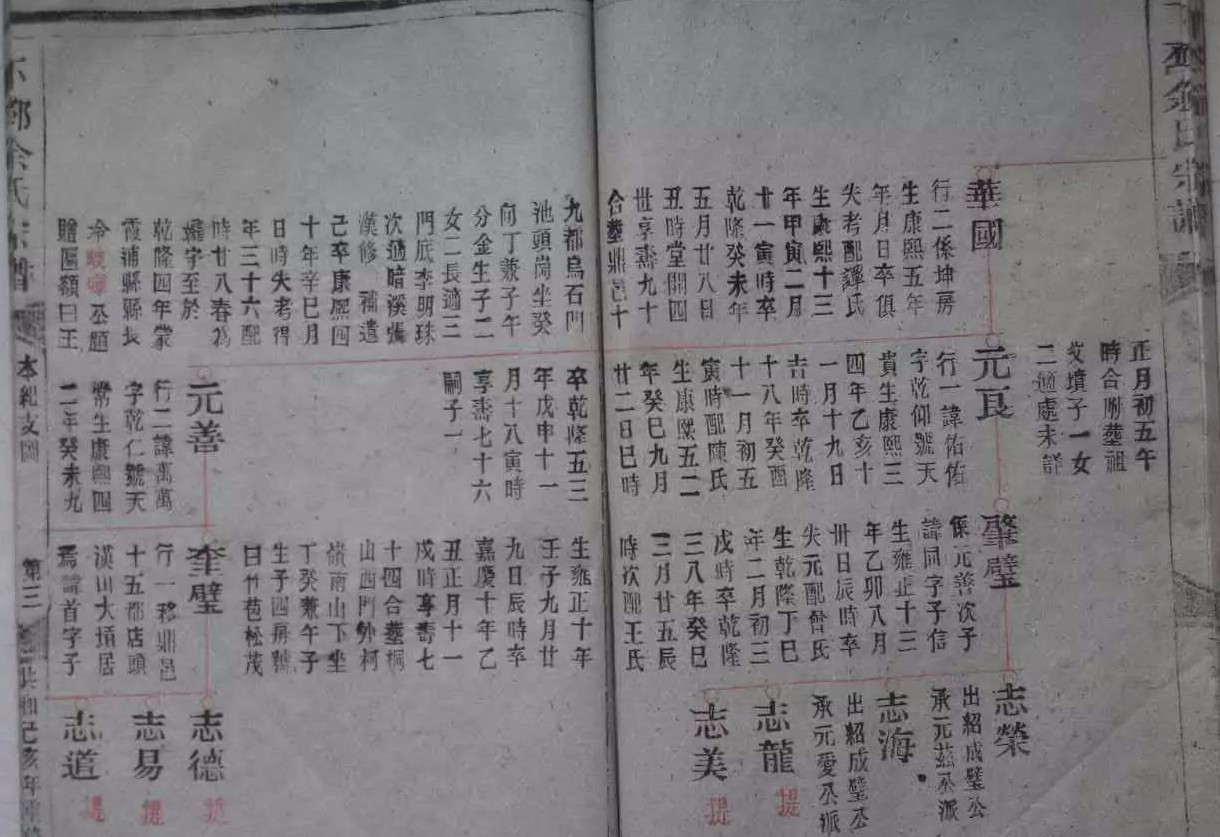 余氏宗譜
正月初五午
時合附塟祖
父墳子一女
二適處未詳
華國
行二係坤房
生康熙五年
年月日卒俱
失考配譚氏
生康熙十三
年甲寅二月
廿一寅時卒
乾隆癸未年
五月廿八日
丑時堂開四
世享壽九十
合塟鼎邑十
九都烏石門
池頭崗坐癸
向丁兼子午
分金生子二
女二長適三
門底李明珠
次適暗溪張
漢修 補遺
己卒康熙四
十年辛巳月
日時失考得
年三十六配
時廿八春為
孀守至於
乾隆四年蒙
霞浦縣縣長
冷 公題
贈匾額曰王
元良
行一諱佑佑
字乾仰號天
貴生康熙三
四年乙亥十
一月十九日
吉時卒乾隆
十八年癸酉
十一月初五
寅時配陳氏
生康熙五二
年癸巳九月
廿二日巳時
卒乾隆五三
年戊申十一
月十八寅時
享壽七十六
嗣子一
元善
行二諱萬萬
字乾仁號天
常生康熙四
二年癸未九
肇璧
係元善次子
諱同字子信
生雍正十三
年乙卯八月
卅日辰時卒
失元配曾氏
生乾隆丁巳
年二月初三
戌時卒乾隆
三八年癸巳
三月廿五辰
時次配王氏
生雍正十年
壬子九月廿
九日辰時卒
嘉慶十年乙
丑正月十一
戌時享壽七
十四合塟桐
山西門外柯
嶺南山下坐
丁癸兼午子
生子四房號
曰竹苞松茂
奎璧
行一移鼎邑
十五都店頭
漢山大墳居
焉諱首字子
志榮
出紹成璧公
承元茲公派
志海
出紹成璧公
承元愛公派
志龍
提
志美
提
志德
提
志易
提
志道
提
余氏宗譜
本紀支圖
第三
共和己亥年重修